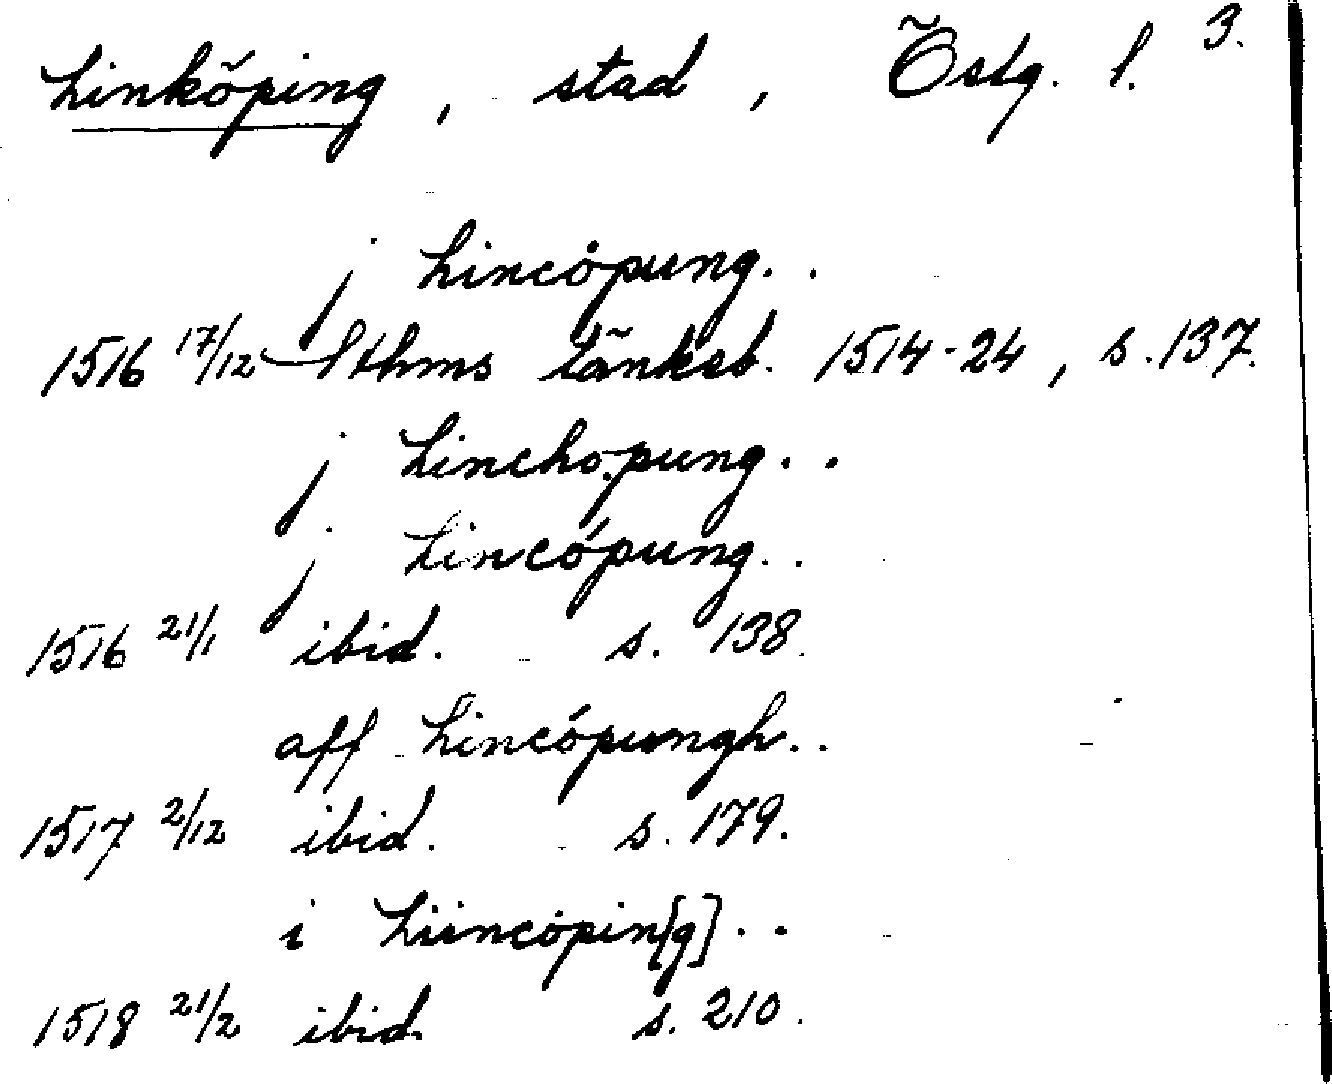 Linköping, stad, Östg. l. 3.
j Lincöpung..
1516 17/12 Sthms tänkeb. 1514-24, s. 137.
j Linchopung..
j Lincópung..
1516 21/1 ibid. s. 138.
aff Lincópungh..
1517 2/12 ibid. s. 179.
i Liincöpin[g]..
1518 21/2 ibid. s. 210.